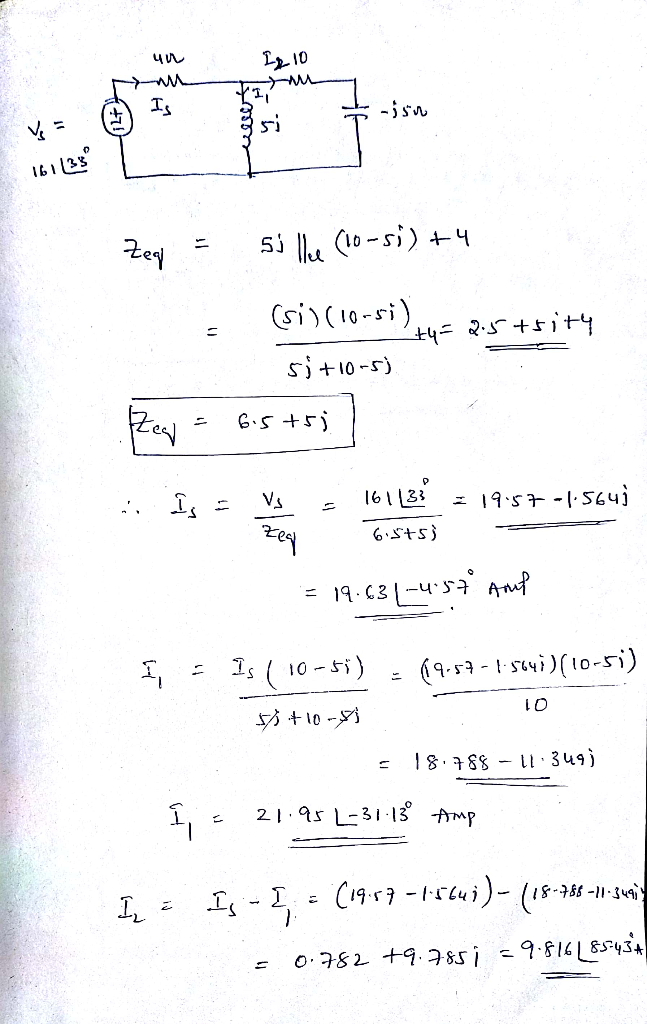 4Ω I₂ 10
Vs = Is I₁ 5j -j5Ω
161∠33°
Zeq = 5j ||le (10-5j) +4
= (5j)(10-5j) / 5j+10-5j +4 = 2.5+5j+4
Zeq = 6.5 +5j
∴ Is = Vs / Zeq = 161∠33° / 6.5+5j = 19.57 -1.564j
= 19.63∠-4.57° Amp
I₁ = Is (10-5j) / 5j+10-5j = (19.57-1.564j)(10-5j) / 10
= 18.788 - 11.349j
I₁ = 21.95∠-31.13° Amp
I₂ = Is - I₁ = (19.57 -1.564j) - (18.788-11.349j)
= 0.782 +9.785j = 9.816∠85.43° A